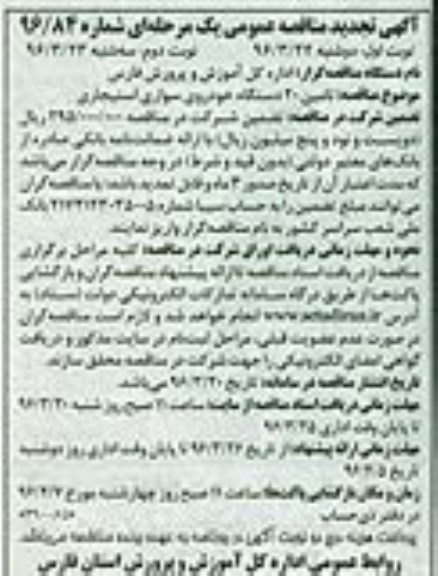 آگهی تجدید مناقصه عمومی یک مرحله‌ای شماره ۹۶/۸۴
نوبت اول: دوشنبه ۹۶/۳/۲۲ نوبت دوم: سه‌شنبه ۹۶/۳/۲۳
نام دستگاه مناقصه‌گزار: اداره کل آموزش و پرورش فارس
موضوع مناقصه: تامین ۲۰ دستگاه خودروی سواری استیجاری
تضمین شرکت در مناقصه: تضمین شرکت در مناقصه ریال
(دویست و نود و پنج میلیون ریال) با ارائه ضمانتنامه بانکی صادره از
بانک‌های معتبر دولتی (بدون قید و شرط) در وجه مناقصه‌گزار می‌باشد
که مدت اعتبار آن از تاریخ صدور ۳ ماه و قابل تمدید باشد؛ یا مناقصه‌گران
می‌توانند مبلغ تضمین را به حساب سیبا شماره بانک
ملی شعب سراسر کشور به نام مناقصه‌گزار واریز نمایند.
نحوه و مهلت زمانی دریافت اوراق شرکت در مناقصه: کلیه مراحل برگزاری
مناقصه از دریافت اسناد مناقصه تا ارائه پیشنهاد مناقصه‌گران و بازگشایی
پاکت‌ها از طریق درگاه سامانه تدارکات الکترونیکی دولت (ستاد) به
آدرس www.setadiran.ir انجام خواهد شد و لازم است مناقصه‌گران
در صورت عدم عضویت قبلی، مراحل ثبت‌نام در سایت مذکور و دریافت
گواهی امضای الکترونیکی را جهت شرکت در مناقصه محقق سازند.
تاریخ انتشار مناقصه در سامانه: تاریخ ۹۶/۳/۲۰ می‌باشد.
مهلت زمانی دریافت اسناد مناقصه از سایت: ساعت ۱۱ صبح روز شنبه ۹۶/۳/۲۰
تا پایان وقت اداری ۹۶/۳/۲۵
مهلت زمانی ارائه پیشنهاد: از تاریخ ۹۶/۳/۲۶ تا پایان وقت اداری روز دوشنبه
تاریخ
زمان و مکان بازگشایی پاکت‌ها: ساعت ۱۱ صبح روز چهارشنبه مورخ
در دفتر ذی‌حساب
پرداخت هزینه درج دو نوبت آگهی در روزنامه به عهده برنده مناقصه می‌باشد.
روابط عمومی اداره کل آموزش و پرورش استان فارس